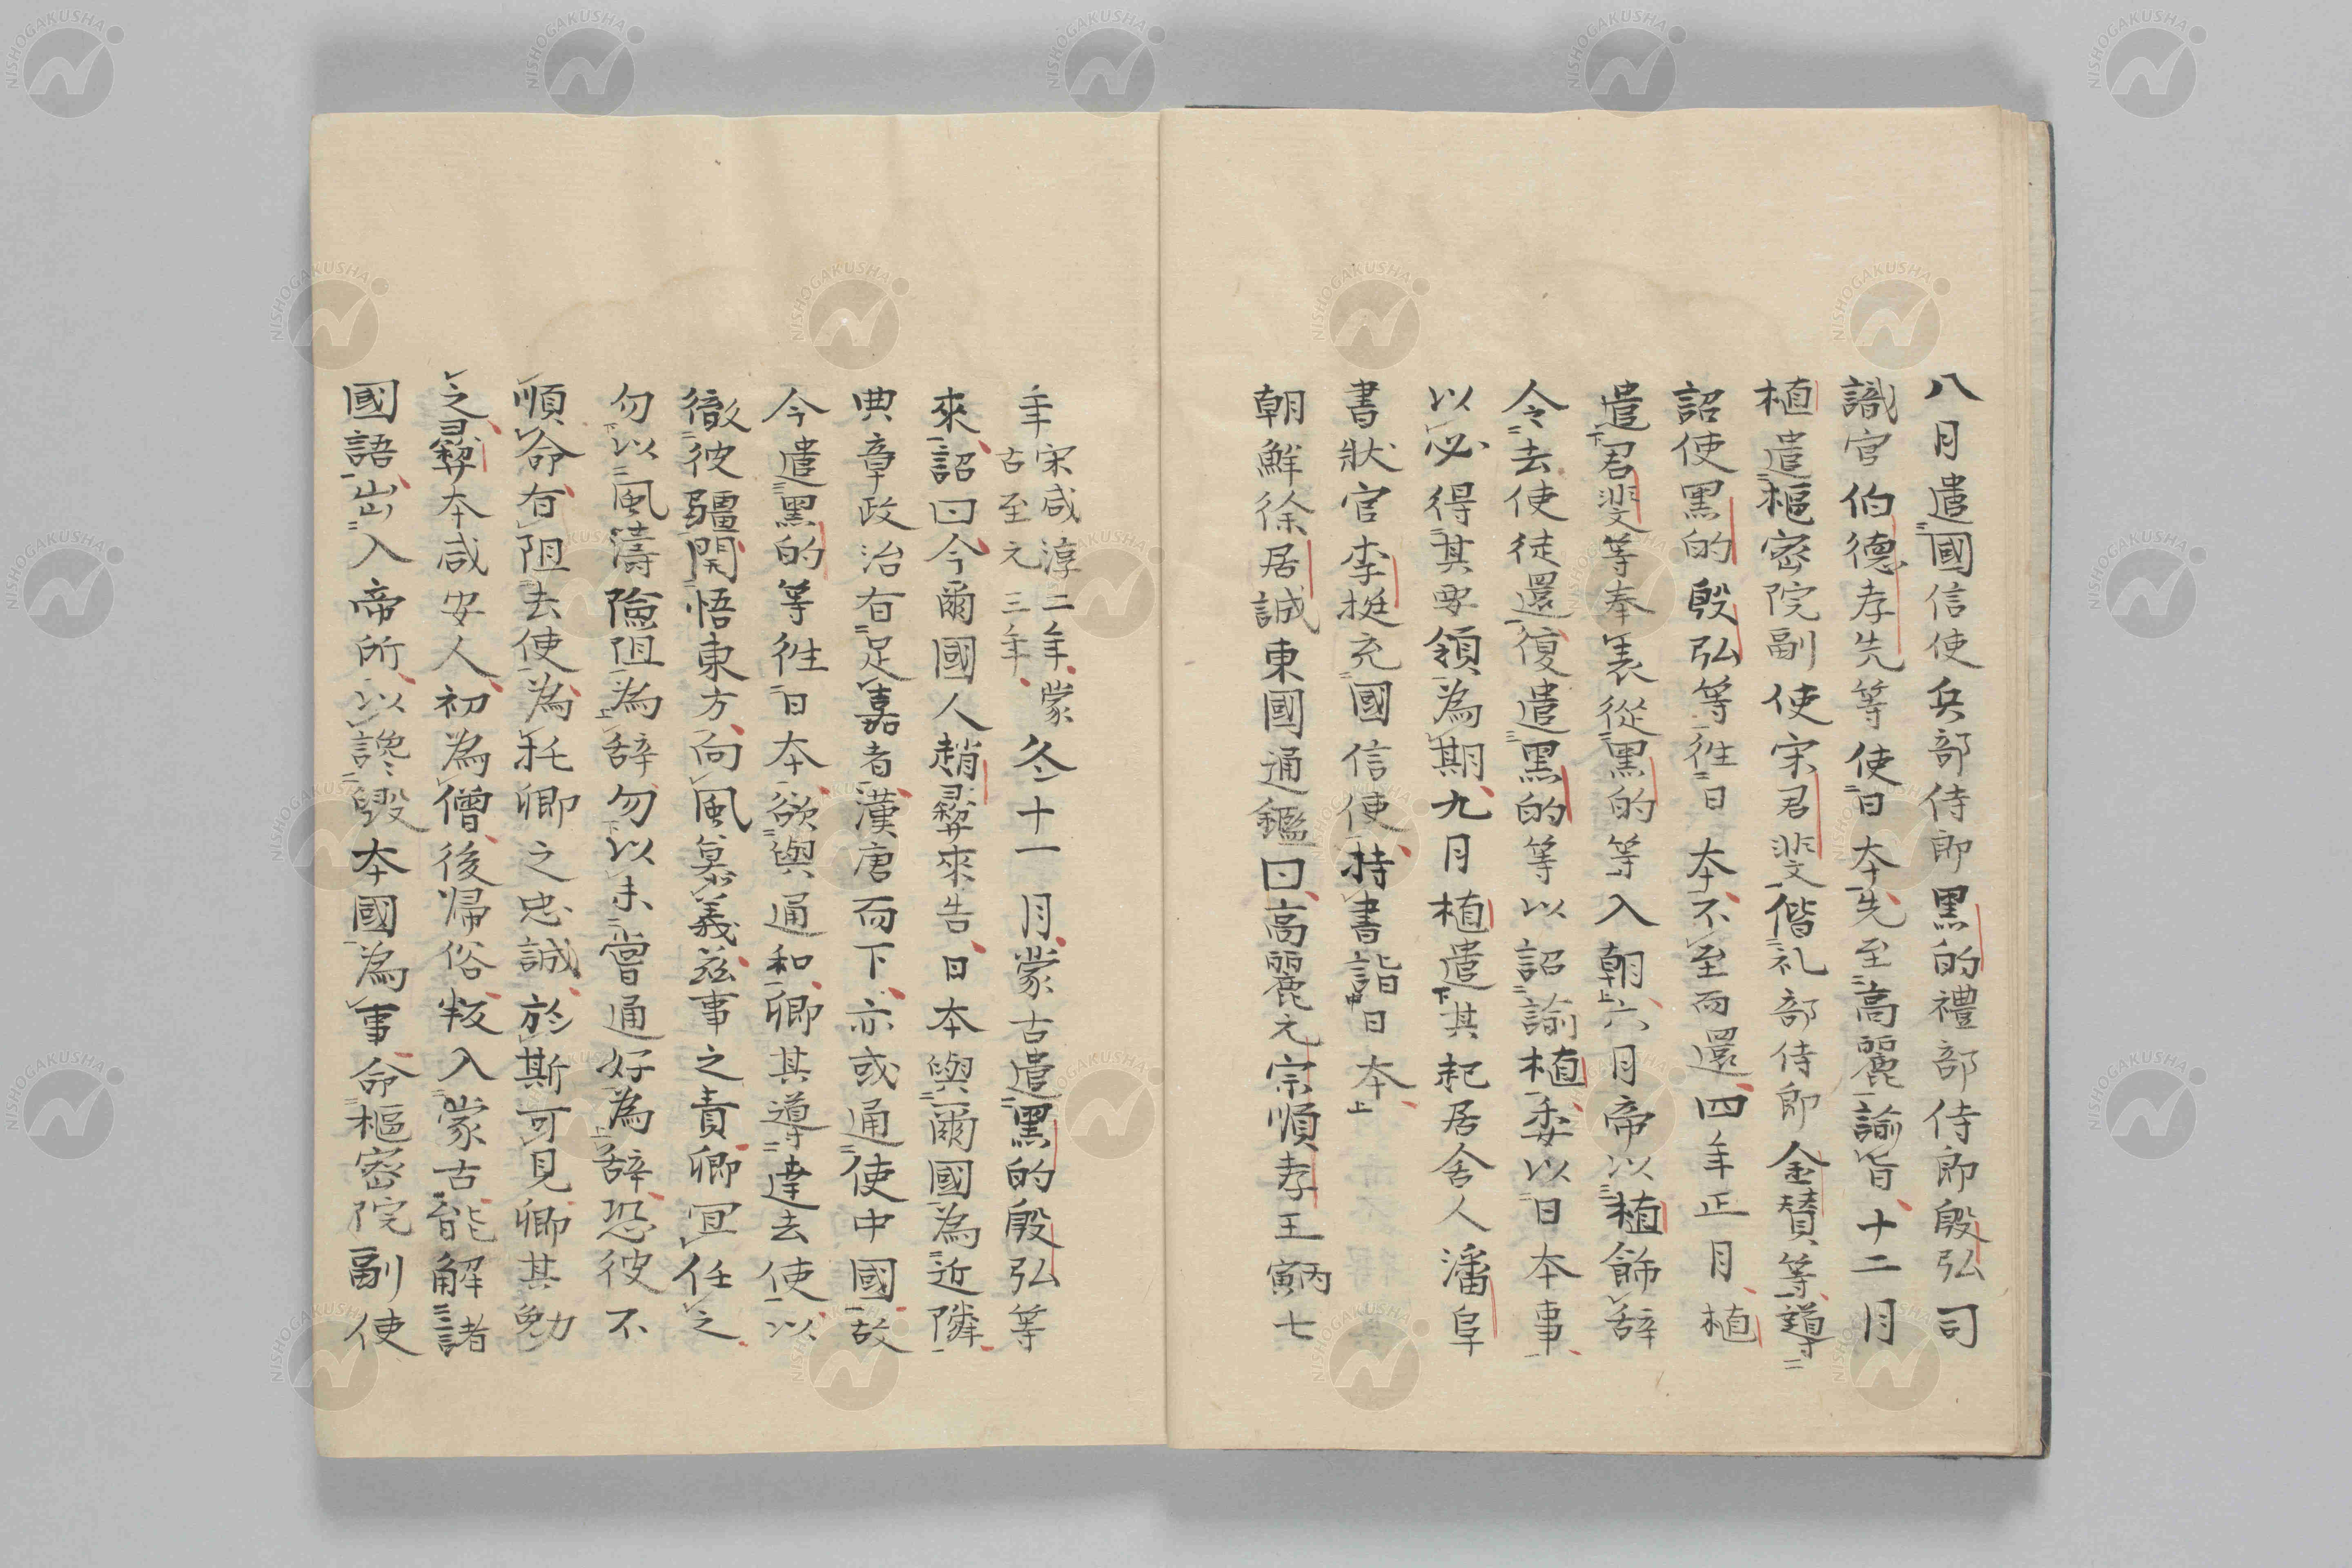 八月遣國信使兵部侍郎黒的禮部侍郎殷弘司
識官伯德孝先等使日本先至高麗諭旨十二月
植遣樞密院副使宋君斐偕礼部侍郎金賛等導
詔使黒的殷弘等往日本不至而還四年正月植
遣君斐等奉表從黒的等入朝六月帝以植飾辞
令去使徒還復遣黒的等以詔諭植委以日本事
以必得其要領為期九月植遣其起居舍人潘阜
書狀官李挺充國信使持書詣日本
朝鮮徐居誠東國通鑑曰高麗元宗順孝王丙寅七
年宋咸淳二年蒙古至元三年冬十一月蒙古遣黒的殷弘等
來詔曰今爾國人趙彛來告日本與爾國為近隣
典章政治有足嘉者漢唐而下亦或通使中國故
今遣黒的等往日本欲與通和卿其導達去使以
徹彼疆開悟東方向風慕義茲事之責卿宜任之
勿以風濤險阻為辞勿以未嘗通好為辞恐彼不
順命有阻去使為托卿之忠誠於斯可見卿其勉
之彛本咸安人初為僧後帰俗叛入蒙古能解諸
國語出入帝所以讒毀本國為事命樞密院副使
NISHOGAKUSHA